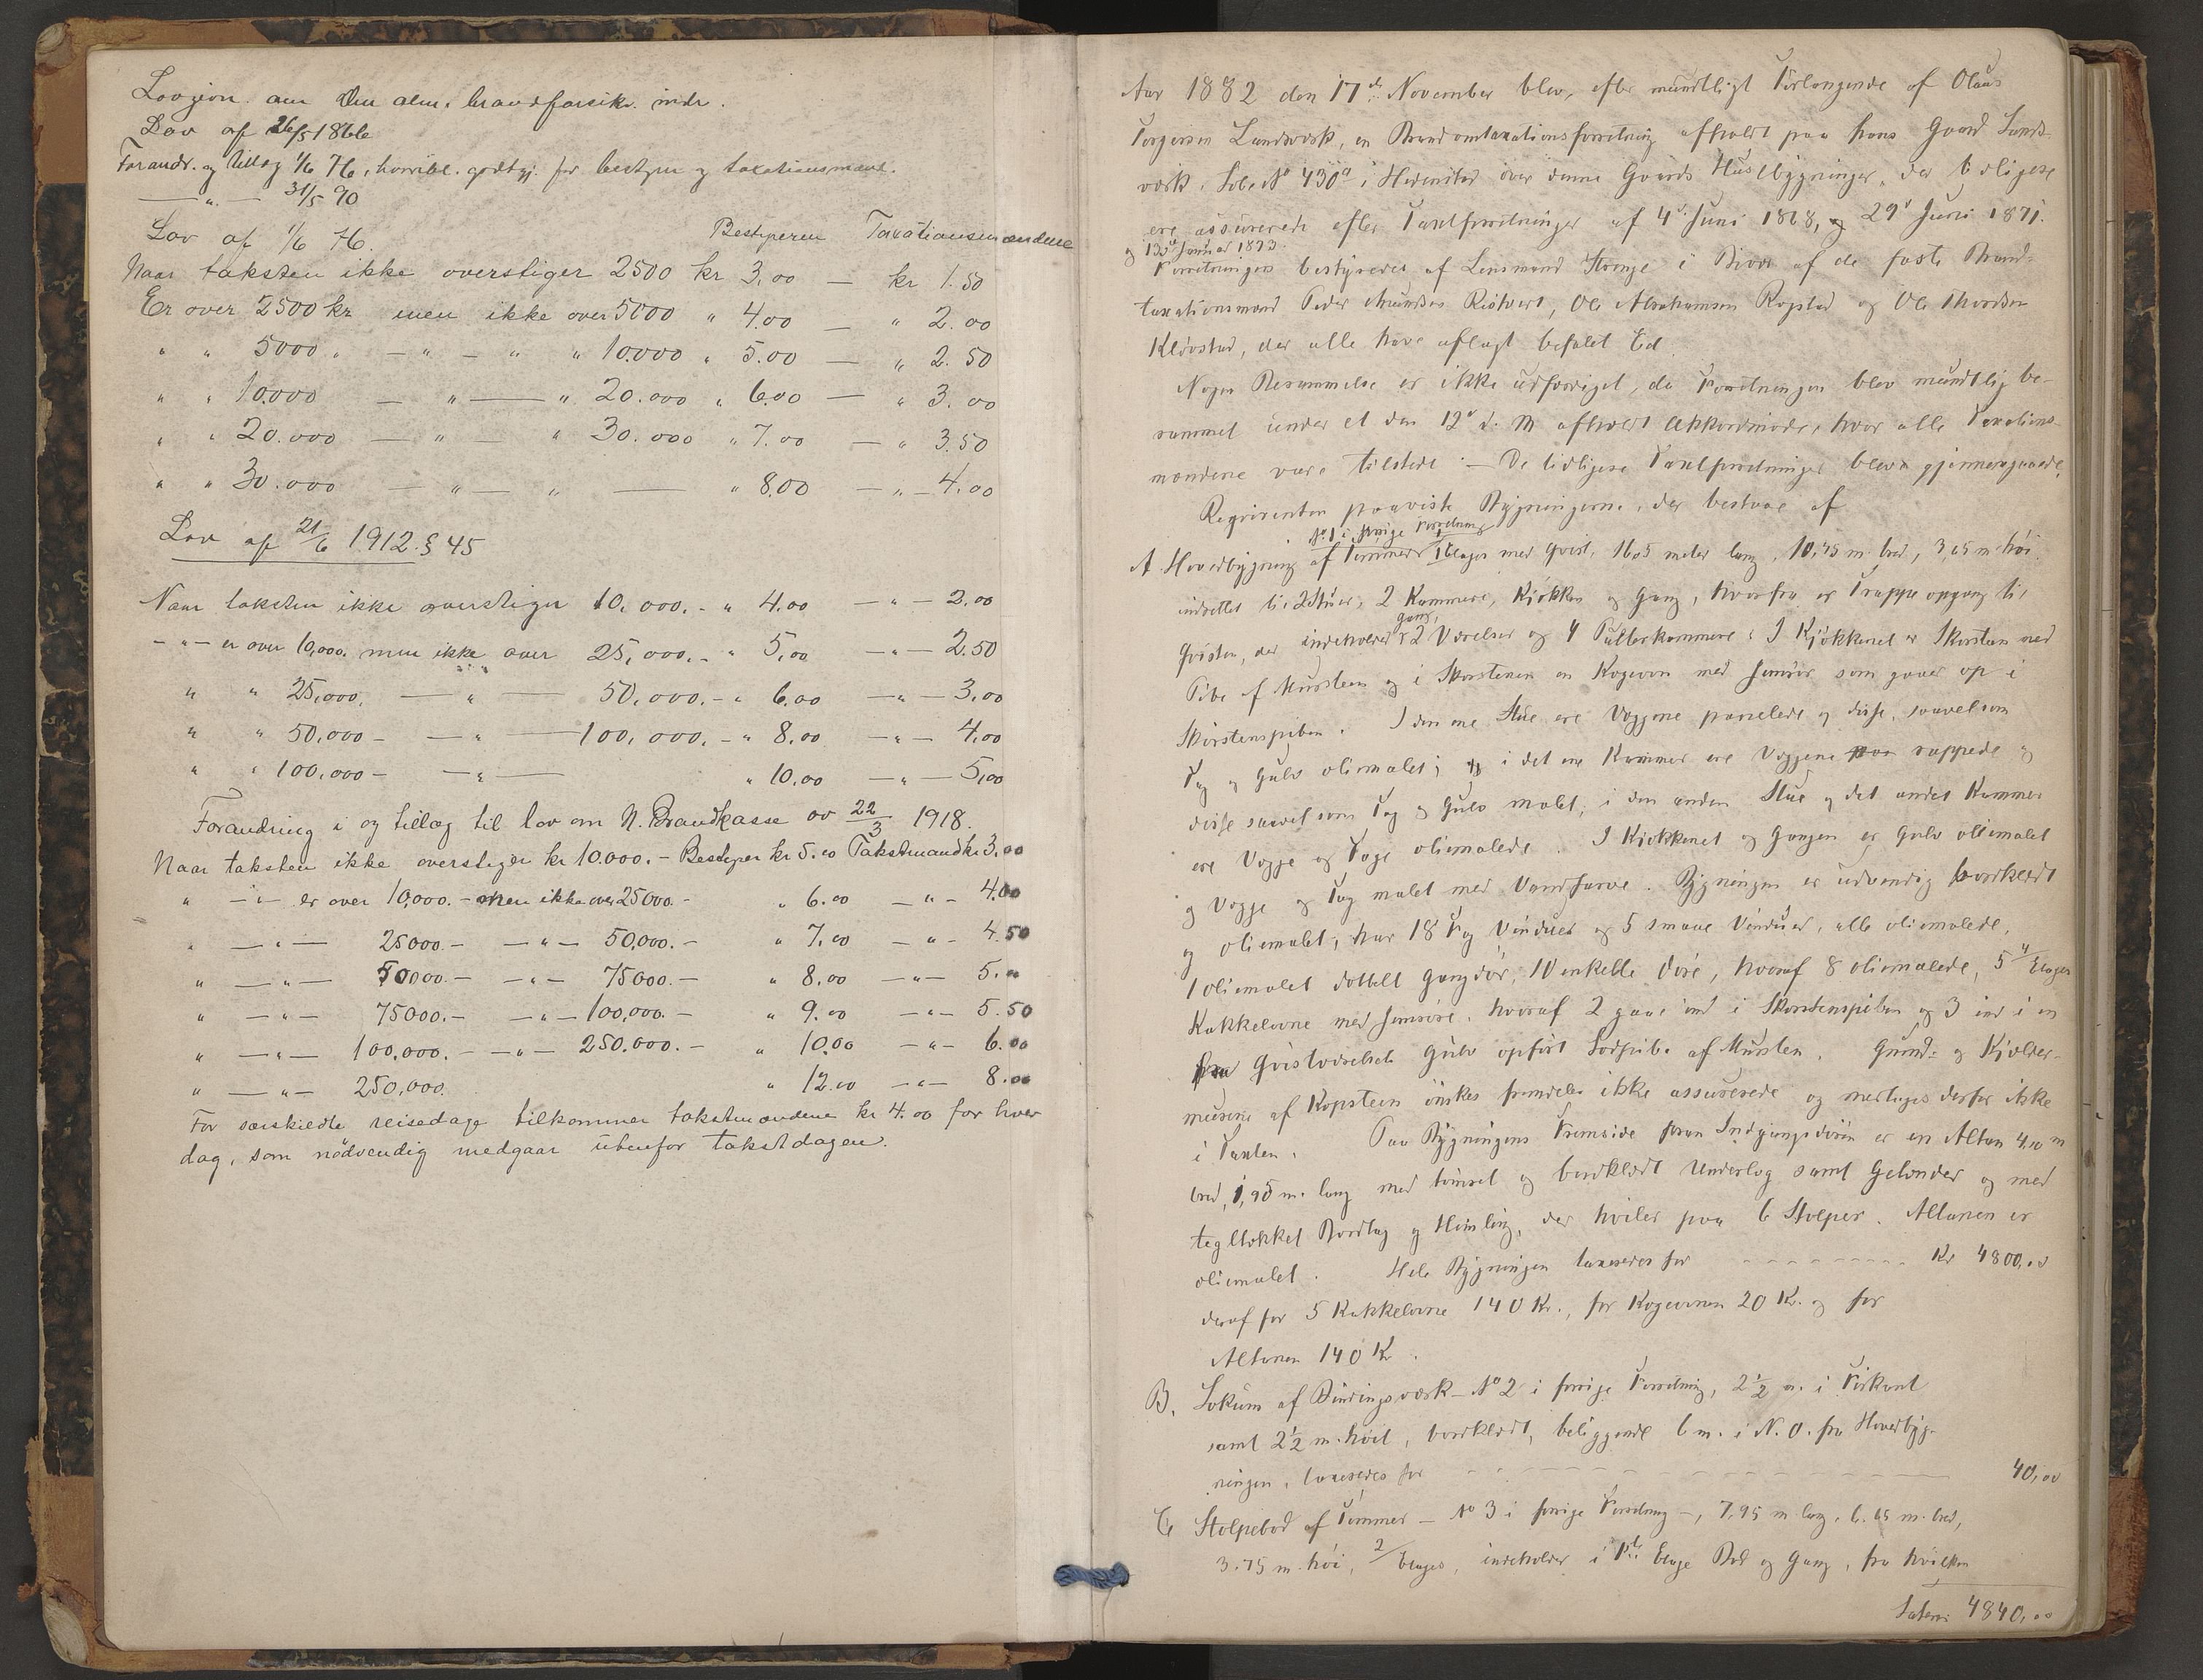 Lovgivn. om den alm. brandforsikr. indr.
Lov af 26/5 1866
Forandr. og tillæg 1/6 76, godtgj. for bestyrer og taxationsmænd.
— " — 31/5 90
Lov af 1/6 76. Bestyreren Taxationsmændene
Naar taksten ikke overstiger 2500 kr 3,00 — kr 1.50
Er over 2500 kr men ikke over 5000 " 4.00 — " 2.00
" " 5000 " — " — " " 10.000 " 5.00 — " 2.50
" " 10.000 — " — " 20.000 " 6.00 — " 3.00
" " 20.000 — " — " 30.000 " 7.00 — " 3.50
" " 30.000 — " — " — " 8.00 — " — 4.00
Lov af 21/6 1912. § 45
Naar taksten ikke overstiger 10,000.- " 4.00 — " — 2.00
— " — er over 10,000. men ikke over 25,000.- " 5,00 — " — 2.50
" " 25,000. — " — 50,000.- " 6.00 — " — 3.00
" " 50,000 - — " — 100,000.- " 8.00 — " — 4.00
" " 100,000 - — " — " 10.00 — " — 5,00
Forandring i og tillæg til lov om N. Brandkasse av 22/3 1918.
Naar taksten ikke overstiger kr 10.000.- Bestyrer kr 5.00 Takstmand kr 3.00
" — " — er over 10,000.- men ikke over 25000.- " 6.00 — " — 4.00
" — " — 25000.- — " — 50,000.- " 7.00 — " — 4.50
" — " — 50000.- — " — 75000.- " 8.00 — " — 5.00
" — " — 75000.- — " — 100,000.- " 9.00 — " — 5.50
" — " — 100,000.- — " — 250.000.- " 10.00 — " — 6.00
" — " — 250,000. " 12.00 — " — 8.00
For særskildte reisedage tilkommer takstmændene kr 4.00 for hver
dag, som nödvendig medgaar utenfor takstdagen.
Aar 1882 den 17d November blev, efter mundtligt Forlangende af Olaus
Torgersen Landværk, en Brandomtaxationsforretning afholdt paa hans Gaard Land-
værk, Løbe No 430a i Hedenstad over denne Gaards Huusbygninger, der tidligere
ere assurerede efter Taxtforretninger af 4d Juni 1868, og 29d Juni 1871.
og 13d Januar 1873.
Forretningen bestyredes af Lensmand Strenge i Bivær af de faste Brand-
taxationsmænd Peder Ristvert, Ole Abrahamsen Rogstad og Ole Thordsen
Kløvstad, der alle have aflagt befalet Ed.
Nogen Berammelse er ikke udfærdiget, da Forretningen blev mundtlig be-
rammet under et den 12d d. M. afholdt Akkordmøde, hvor alle Taxations-
mændene vare tilstede. — De tidligere Taxtforretninger blev gjennemgaaede.
Reqvirenten paaviste Bygningerne, der bestaae af
No 1 i forrige Forretning
A Hovedbygning af Tømmer 1 Etages med Qvist, 16,05 meter lang, 10,45 m. bred, 3,65 m. høi
indrettet til 2 Stuer, 2 Kammere, Kjøkken og Gang, hvorfra er Trappeopgang til
Gang,
Qvisten, der indeholder 2 Værelser og 4 Pulterkammere. I Kjøkkenet er Skorsten med
Pibe af Mursteen og i Skorstenen en Kogeovn med Jernrør som gaaer op i
Skorstenspiben. I den ene Stue ere Væggene panelede og disse, saavelsom
Tag og Gulv oliemalet; i det ene Kammer ere Væggene rappede og
disse saavelsom Tag og Gulv malet; i den anden Stue og det andet Kammer
ere Vægge og Tage oliemalede. I Kjøkkenet og Gangen er Gulv oliemalet
og Vægge og Tag malet med Vandfarve. Bygningen er udvendig bordklædt
og oliemalet, har 18 Fag Vinduer og 5 smaae Vinduer, alle oliemalede,
1 oliemalet dobbelt Gangdør, 10 enkelte Døre, hvoraf 8 oliemalede, 5 Etages
Kakkelovne med Jernrøre, hvoraf 2 gaae ind i Skorstenspiben og 3 ind i en
fra Qvistværelsets Gulv opført Sodpibe af Mursten. Grund- og Kjelder-
murene af Kopsteen ønskes fremdeles ikke assurerede og medtages derfor ikke
i Taxten. Paa Bygningens Fremside foran Indgangsdøren er en Altan 4,10 m
bred, 1,95 m. lang med tømret og bordklædt Underlag samt Gelænder og med
tegltækket Bordtag og Himling, der hviler paa 6 Stolper. Altanen er
oliemalet. Hele Bygningen taxeredes for - - - - - - - - Kr 4800,00
deraf for 5 Kakkelovne 140 Kr., for Kogeovnen 20 Kr. og for
Altanen 140 Kr.
B. Lokum af Bindingsværk – No 2 i forrige Forretning, 2½ m. i Firkant
samt 2½ m. høit, bordklædt, beliggende 6 m. i N. O. fra Hovedbyg-
ningen, taxeredes for - - - - - - - - 40,00
C Stolpebod af Tømmer – No 3 i forrige Forretning –, 7,95 m lang, 6.65 m. bred,
3.75 m. høi, 2 Etages, indeholder i 1ste Etage Bod og Gang, fra hvilken
Lateris 4840,00